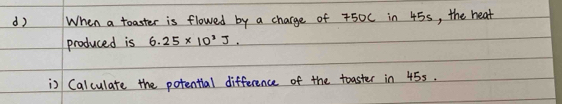 d) When a toaster is flowed by a charge of 750C in 45s, the heat
produced is 6.25 × 10³ J.
i) Calculate the potential difference of the toaster in 45s.